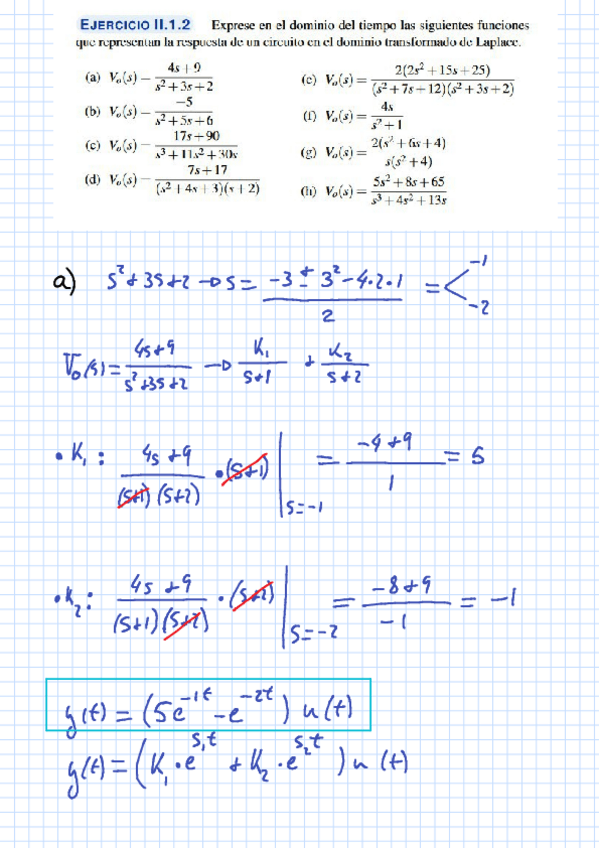 EJERCICIO II.1.2 Exprese en el dominio del tiempo las siguientes funciones
que representan la respuesta de un circuito en el dominio transformado de Laplace.
(a) Vₒ(s) = (4s+9)/(s²+3s+2)
(b) Vₒ(s) = −5/(s²+5s+6)
(c) Vₒ(s) = (17s+90)/(s³+11s²+30s)
(d) Vₒ(s) = (7s+17)/((s²+4s+3)(s+2))
(e) Vₒ(s) = 2(2s²+15s+25)/((s²+7s+12)(s²+3s+2))
(f) Vₒ(s) = 4s/(s²+1)
(g) Vₒ(s) = 2(s²+6s+4)/(s(s²+4))
(h) Vₒ(s) = (5s²+8s+65)/(s³+4s²+13s)
a) s²+3s+2 → s = (-3 ± 3²-4·2·1)/2 = < -1 -2
Vₒ(s) = (4s+9)/(s²+3s+2) → K₁/(s+1) + K₂/(s+2)
• K₁: (4s+9)/((s+1)(s+2)) • (s+1) | s=-1 = (-4+9)/1 = 5
• K₂: (4s+9)/((s+1)(s+2)) • (s+2) | s=-2 = (-8+9)/-1 = -1
y(t) = (5e^-1t - e^-2t) u(t)
y(t) = (K₁·e^s₁t + K₂·e^s₂t) u(t)